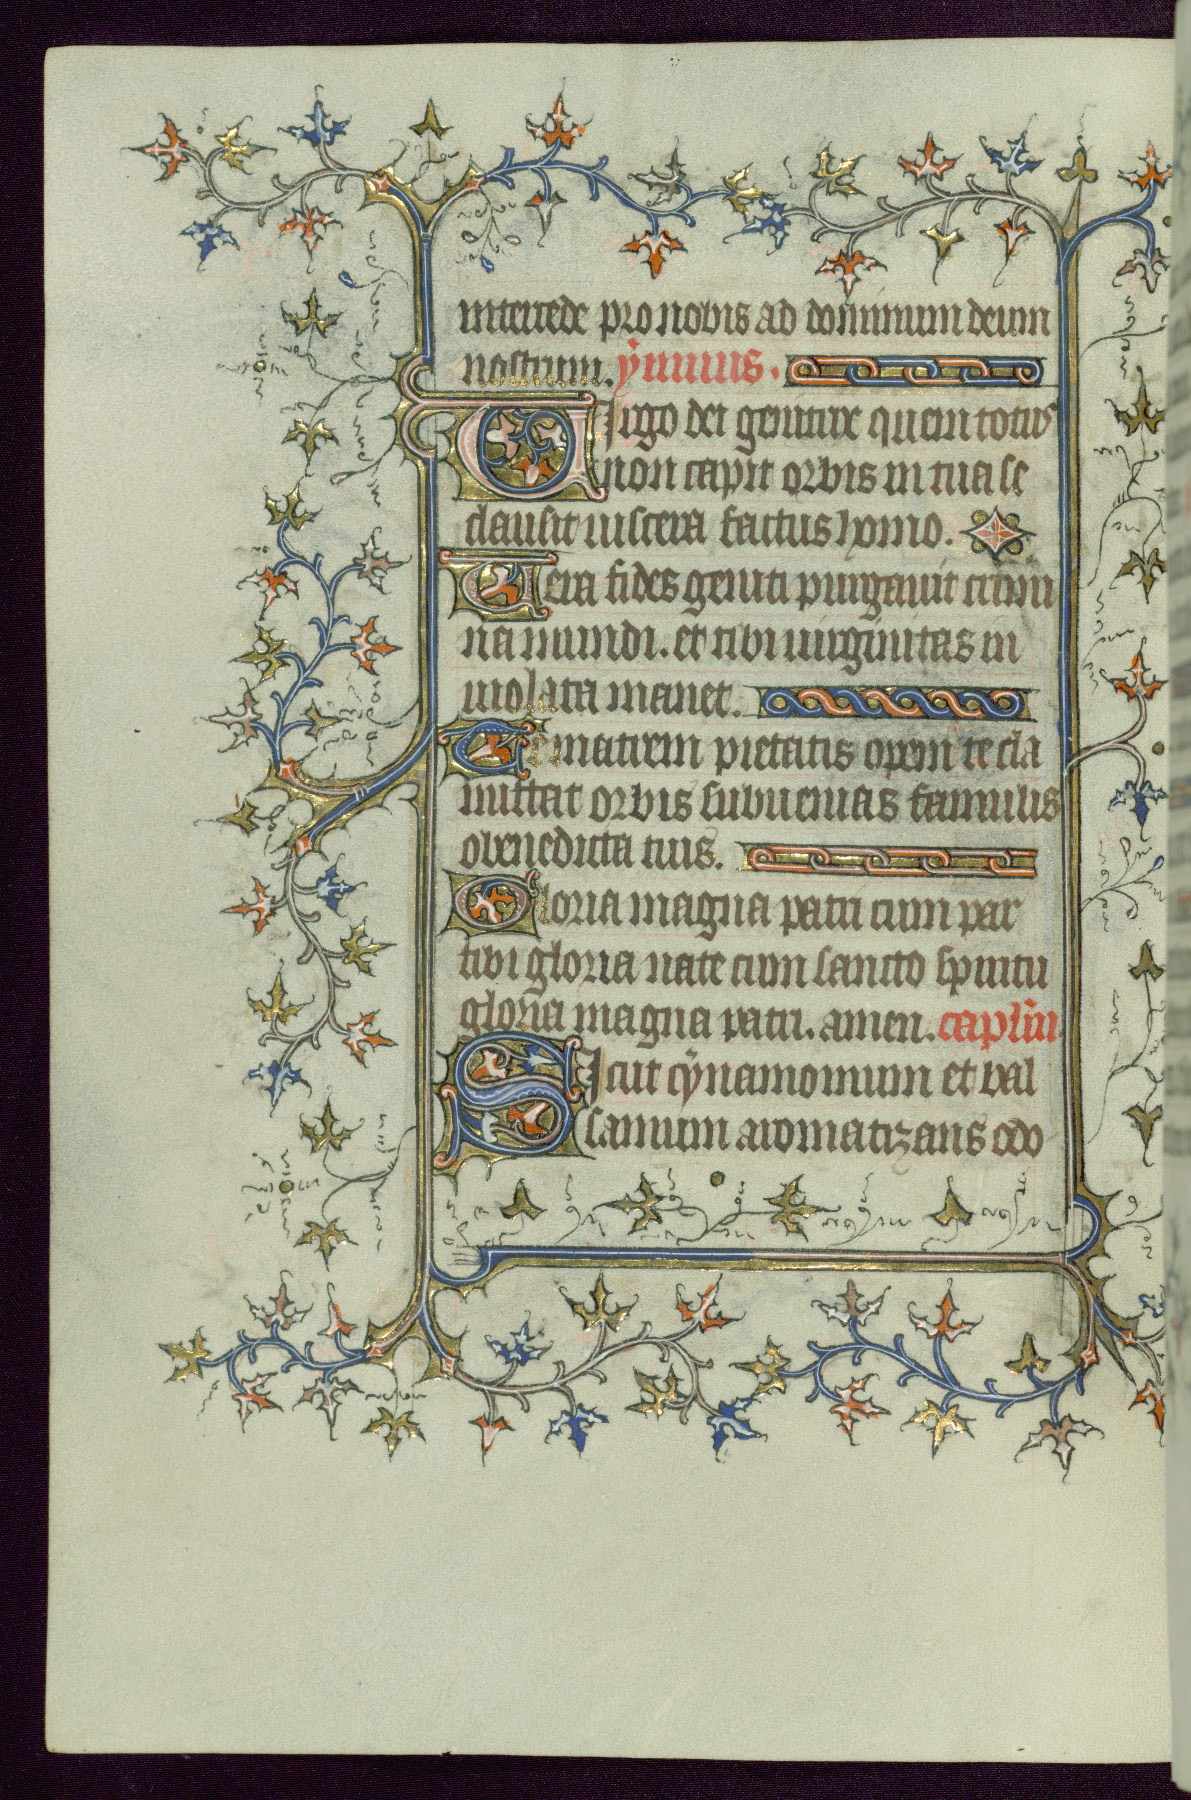 intercede pro nobis ad dominum deum
nostrum. ymnus.
Virgo dei genitrix quem totus
non capit orbis in tua se
clausit uiscera factus homo.
Vera fides geniti purgauit crimi
na mundi. et tibi uirginitas in
uiolata manet.
Te matrem pietatis opem te cla
mittat orbis subuenias famulis
o benedicta tuis.
Gloria magna patri cum par
tibi gloria nate cum sancto spiritu
gloria magna patri. amen. caplm
Sicut cynamomum et bal
samum aromatizans odo